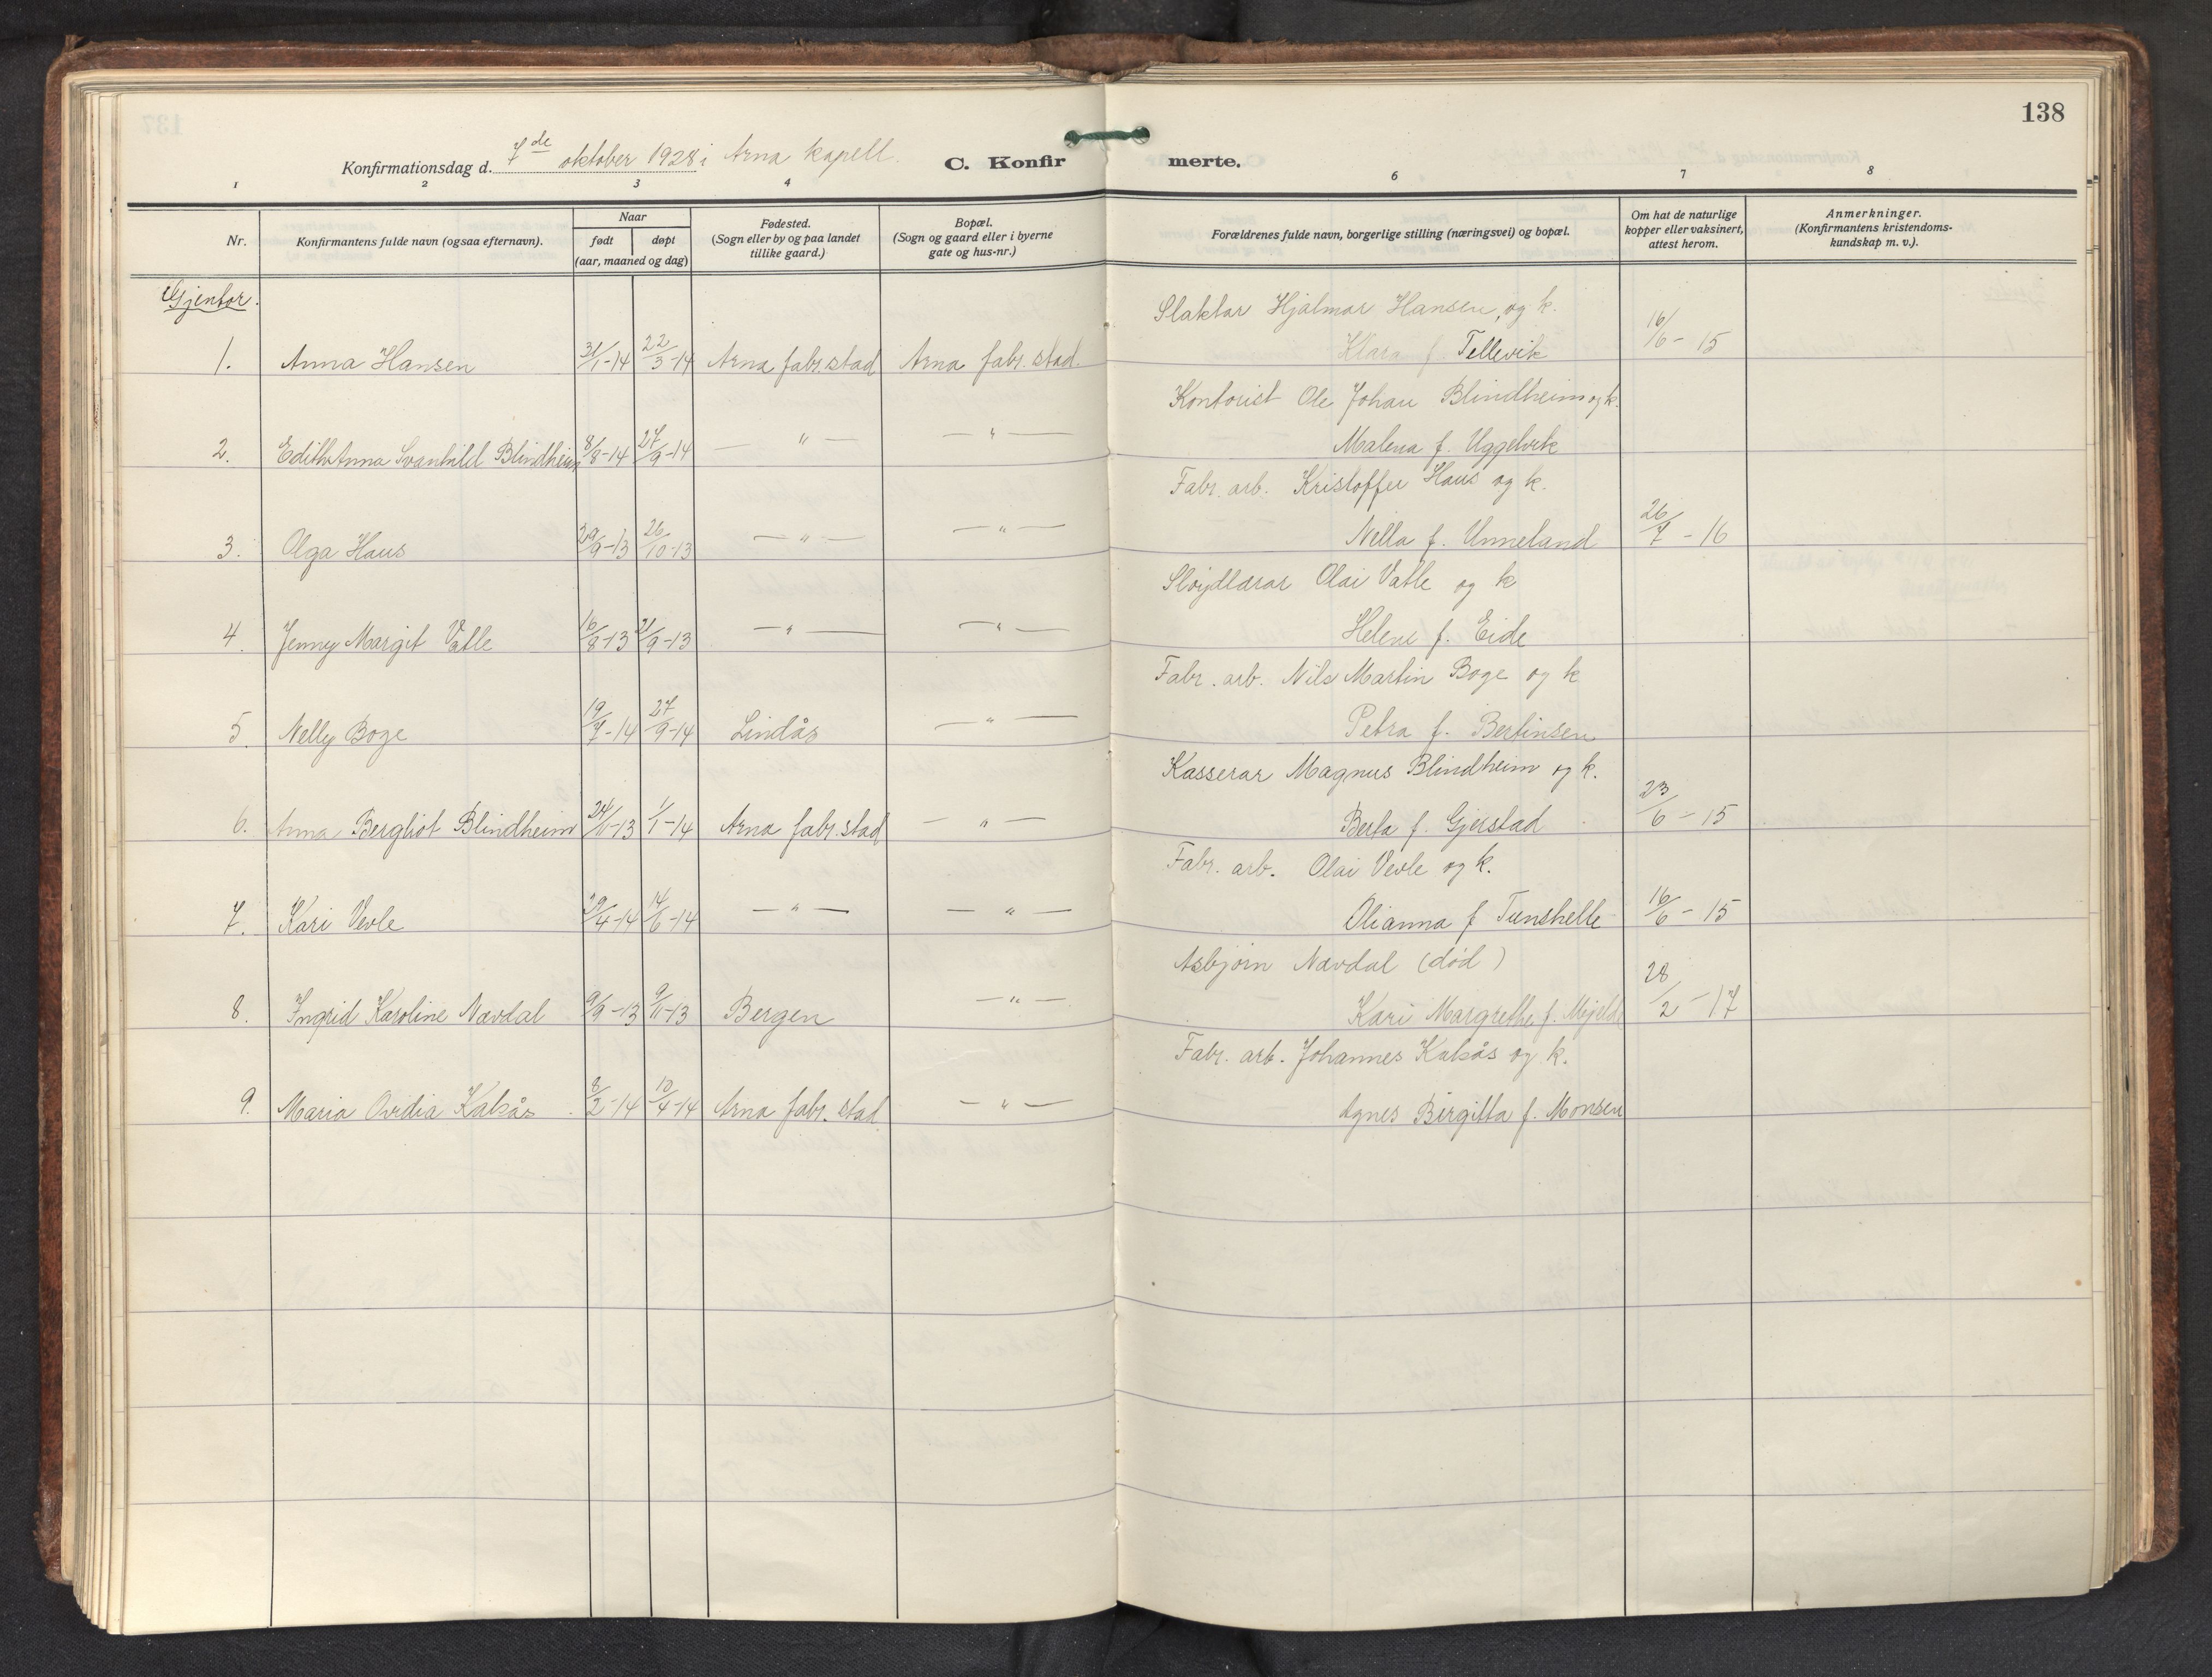 138
Konfirmationsdag d. 7de oktober 1928 i Arna kapell. C. Konfirmerte.
1 2 3 4 6 7 8
Nr. Konfirmantens fulde navn (ogsaa efternavn). Naar født døpt (aar, maaned og dag) Fødested. (Sogn eller by og paa landet tillike gaard.) Bopæl. (Sogn og gaard eller i byerne gate og hus-nr.) Forældrenes fulde navn, borgerlige stilling (næringsvei) og bopæl. Om hat de naturlige kopper eller vaksinert, attest herom. Anmerkninger. (Konfirmantens kristendoms-kundskap m. v.).
Gjentor.
Slaktar Hjalmar Hansen, og k.
1. Anna Hansen 31/1-14 22/3-14 Arna fabr. stad Arna fabr. stad. Klara f. Tellevik 16/6-15
Kontorist Ole Johan Blindheim og k.
2. Edith Anna Svanhild Blindheim 8/8-14 27/9-14 — " — — " — Malena f. Uggelvik
Fabr. arb. Kristoffer Haus og k.
3. Olga Haus 29/9-13 26/10-13 — " — — " — Nella f. Unneland 26/7-16
Sløydlærar Olai Vatle og k
4. Jenny Margit Vatle 16/8-13 21/9-13 — " — — " — Helene f. Eide
Fabr. arb. Nils Martin Boge og k
5. Nelly Boge 19/7-14 27/9-14 Lindås — " — Petra f. Bertinsen
Kasserar Magnus Blindheim og k.
6. Anna Bergliot Blindheim 24/11-13 1/1-14 Arna fabr. stad — " — Berta f. Gjerstad 23/6-15
Fabr. arb. Olai Vevle og k.
7. Kari Vevle 29/4-14 14/6-14 — " — — " — Olianna f Tunshelle 16/6-15
Asbjørn Nævdal (død)
8. Ingrid Karoline Nævdal 9/9-13 9/11-13 Bergen — " — Kari Margrethe f. Mjelde 28/2-17
Fabr. arb. Johannes Kalsås og k.
9. Maria Ovidia Kalsås 8/2-14 10/4-14 Arna fabr. stad — " — Agnes Birgitta f. Monsen